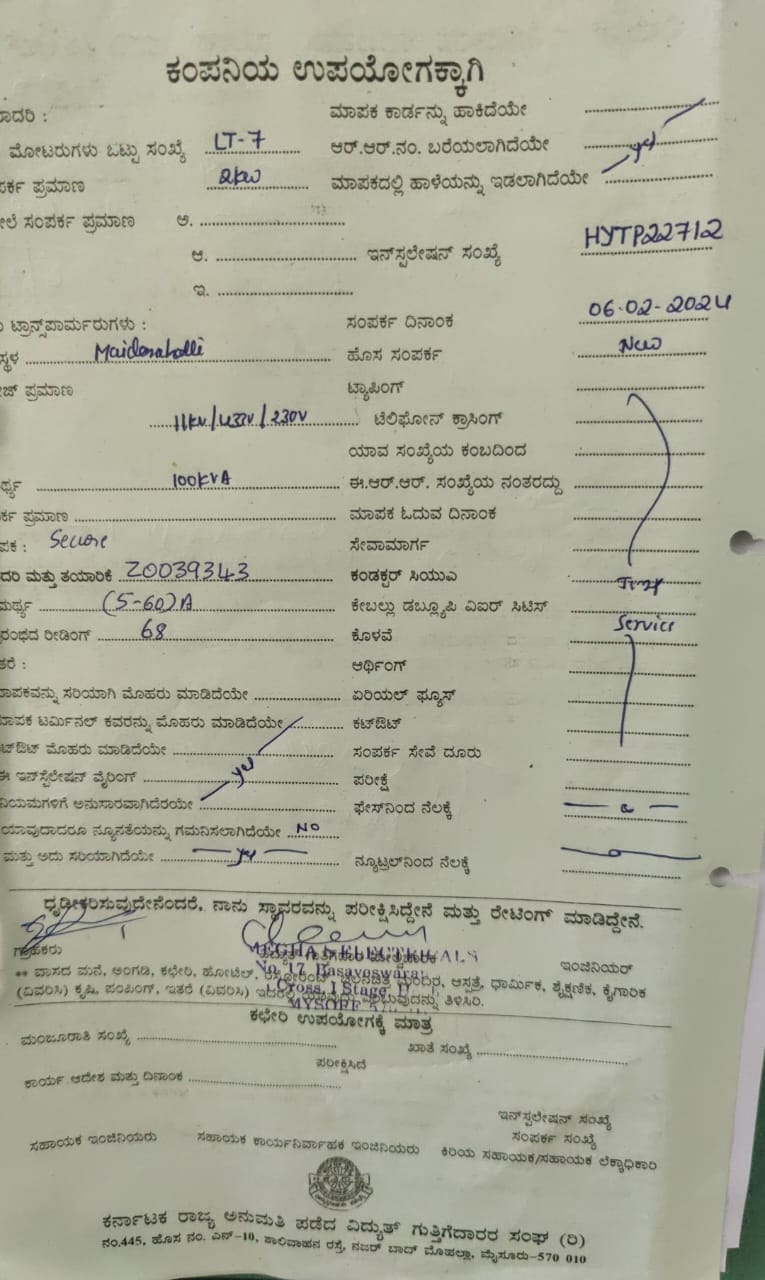 ಕಂಪನಿಯ ಉಪಯೋಗಕ್ಕಾಗಿ
ಮಾದರಿ : ಮಾಪಕ ಕಾರ್ಡನ್ನು ಹಾಕಿದೆಯೇ
ಮೋಟರುಗಳು ಒಟ್ಟು ಸಂಖ್ಯೆ LT-7 ಆರ್.ಆರ್.ನಂ. ಬರೆಯಲಾಗಿದೆಯೇ yes
ಪರ್ಕ ಪ್ರಮಾಣ 2kw ಮಾಪಕದಲ್ಲಿ ಹಾಳೆಯನ್ನು ಇಡಲಾಗಿದೆಯೇ
ಲೆ ಸಂಪರ್ಕ ಪ್ರಮಾಣ ಅ.
ಆ. ಇನ್‌ಸ್ಪಲೇಷನ್ ಸಂಖ್ಯೆ HYTP22712
ಇ.
ಟ್ರಾನ್ಸ್‌ಫಾರ್ಮರುಗಳು : ಸಂಪರ್ಕ ದಿನಾಂಕ 06-02-2024
ಸ್ಥಳ Maidanahalli ಹೊಸ ಸಂಪರ್ಕ New
ಪ್ರಮಾಣ ಟ್ಯಾಪಿಂಗ್
11kv/433v/230v ಟೆಲಿಫೋನ್ ಕ್ರಾಸಿಂಗ್
ಯಾವ ಸಂಖ್ಯೆಯ ಕಂಬದಿಂದ
100KVA ಈ.ಆರ್.ಆರ್. ಸಂಖ್ಯೆಯ ನಂತರದ್ದು
ರ್ಕ ಪ್ರಮಾಣ ಮಾಪಕ ಓದುವ ದಿನಾಂಕ
ಪಕ : Secure ಸೇವಾಮಾರ್ಗ
ದರಿ ಮತ್ತು ತಯಾರಿಕೆ Z0039343 ಕಂಡಕ್ಟರ್ ಸಿಯುಎ
ಮರ್ಥ್ಯ (5-60)A ಕೇಬಲ್ಲು ಡಬ್ಲ್ಯೂಪಿ ವಿಐರ್ ಸಿಟಿಸ್
ರಂಭದ ರೀಡಿಂಗ್ 68 ಕೊಳವೆ Service
ತರೆ : ಆರ್ಥಿಂಗ್
ಮಾಪಕವನ್ನು ಸರಿಯಾಗಿ ಮೊಹರು ಮಾಡಿದೆಯೇ ಏರಿಯಲ್ ಫ್ಯೂಸ್
ಮಾಪಕ ಟರ್ಮಿನಲ್ ಕವರನ್ನು ಮೊಹರು ಮಾಡಿದೆಯೇ ಕಟ್‌ಔಟ್
ಟ್‌ಔಟ್ ಮೊಹರು ಮಾಡಿದೆಯೇ ಸಂಪರ್ಕ ಸೇವೆ ದೂರು
ಈ ಇನ್‌ಸ್ಪಲೇಷನ್ ವೈರಿಂಗ್ yes ಪರೀಕ್ಷೆ
ನಿಯಮಗಳಿಗೆ ಅನುಸಾರವಾಗಿದೆರಯೇ ಫೇಸ್‌ನಿಂದ ನೆಲಕ್ಕೆ
ಯಾವುದಾದರೂ ನ್ಯೂನತೆಯನ್ನು ಗಮನಿಸಲಾಗಿದೆಯೇ NO
ಮತ್ತು ಅದು ಸರಿಯಾಗಿದೆಯೇ yes ನ್ಯೂಟ್ರಲ್‌ನಿಂದ ನೆಲಕ್ಕೆ
ಧೃಡೀಕರಿಸುವುದೇನೆಂದರೆ, ನಾನು ಸ್ಥಾವರವನ್ನು ಪರೀಕ್ಷಿಸಿದ್ದೇನೆ ಮತ್ತು ರೇಟಿಂಗ್ ಮಾಡಿದ್ದೇನೆ.
ಗ್ರಾಹಕರು ವಿದ್ಯುತ್ ಗುತ್ತಿಗೆದಾರ ಇಂಜಿನಿಯರ್
MEGHA ELECTRICALS
No. 17, Basaveswara
Cross, I Stage,
MYSORE
** ವಾಸದ ಮನೆ, ಅಂಗಡಿ, ಕಛೇರಿ, ಹೋಟೆಲ್, ರೆಸ್ಟೋರೆಂಟ್ ಚಲನಚಿತ್ರ ಮಂದಿರ, ಆಸ್ಪತ್ರೆ, ಧಾರ್ಮಿಕ, ಶೈಕ್ಷಣಿಕ, ಕೈಗಾರಿಕ
(ವಿವರಿಸಿ) ಕೃಷಿ, ಪಂಪಿಂಗ್, ಇತರೆ (ವಿವರಿಸಿ) ಇದರಲ್ಲಿ ಯಾವುದು ಎಂಬುವುದನ್ನು ತಿಳಿಸಿರಿ.
ಕಛೇರಿ ಉಪಯೋಗಕ್ಕೆ ಮಾತ್ರ
ಮಂಜೂರಾತಿ ಸಂಖ್ಯೆ ಖಾತೆ ಸಂಖ್ಯೆ
ಪರೀಕ್ಷಿಸಿದೆ
ಕಾರ್ಯ ಆದೇಶ ಮತ್ತು ದಿನಾಂಕ
ಇನ್‌ಸ್ಪಲೇಷನ್ ಸಂಖ್ಯೆ
ಸಂಪರ್ಕ ಸಂಖ್ಯೆ
ಸಹಾಯಕ ಇಂಜಿನಿಯರು ಸಹಾಯಕ ಕಾರ್ಯನಿರ್ವಾಹಕ ಇಂಜಿನಿಯರು ಕಿರಿಯ ಸಹಾಯಕ/ಸಹಾಯಕ ಲೆಕ್ಕಾಧಿಕಾರಿ
ಕರ್ನಾಟಕ ರಾಜ್ಯ ಅನುಮತಿ ಪಡೆದ ವಿದ್ಯುತ್ ಗುತ್ತಿಗೆದಾರರ ಸಂಘ (ರಿ)
ನಂ.445, ಹೊಸ ನಂ. ಎನ್-10, ಶಾಲಿವಾಹನ ರಸ್ತೆ, ನಜರ್ ಬಾದ್ ಮೊಹಲ್ಲಾ, ಮೈಸೂರು-570 010